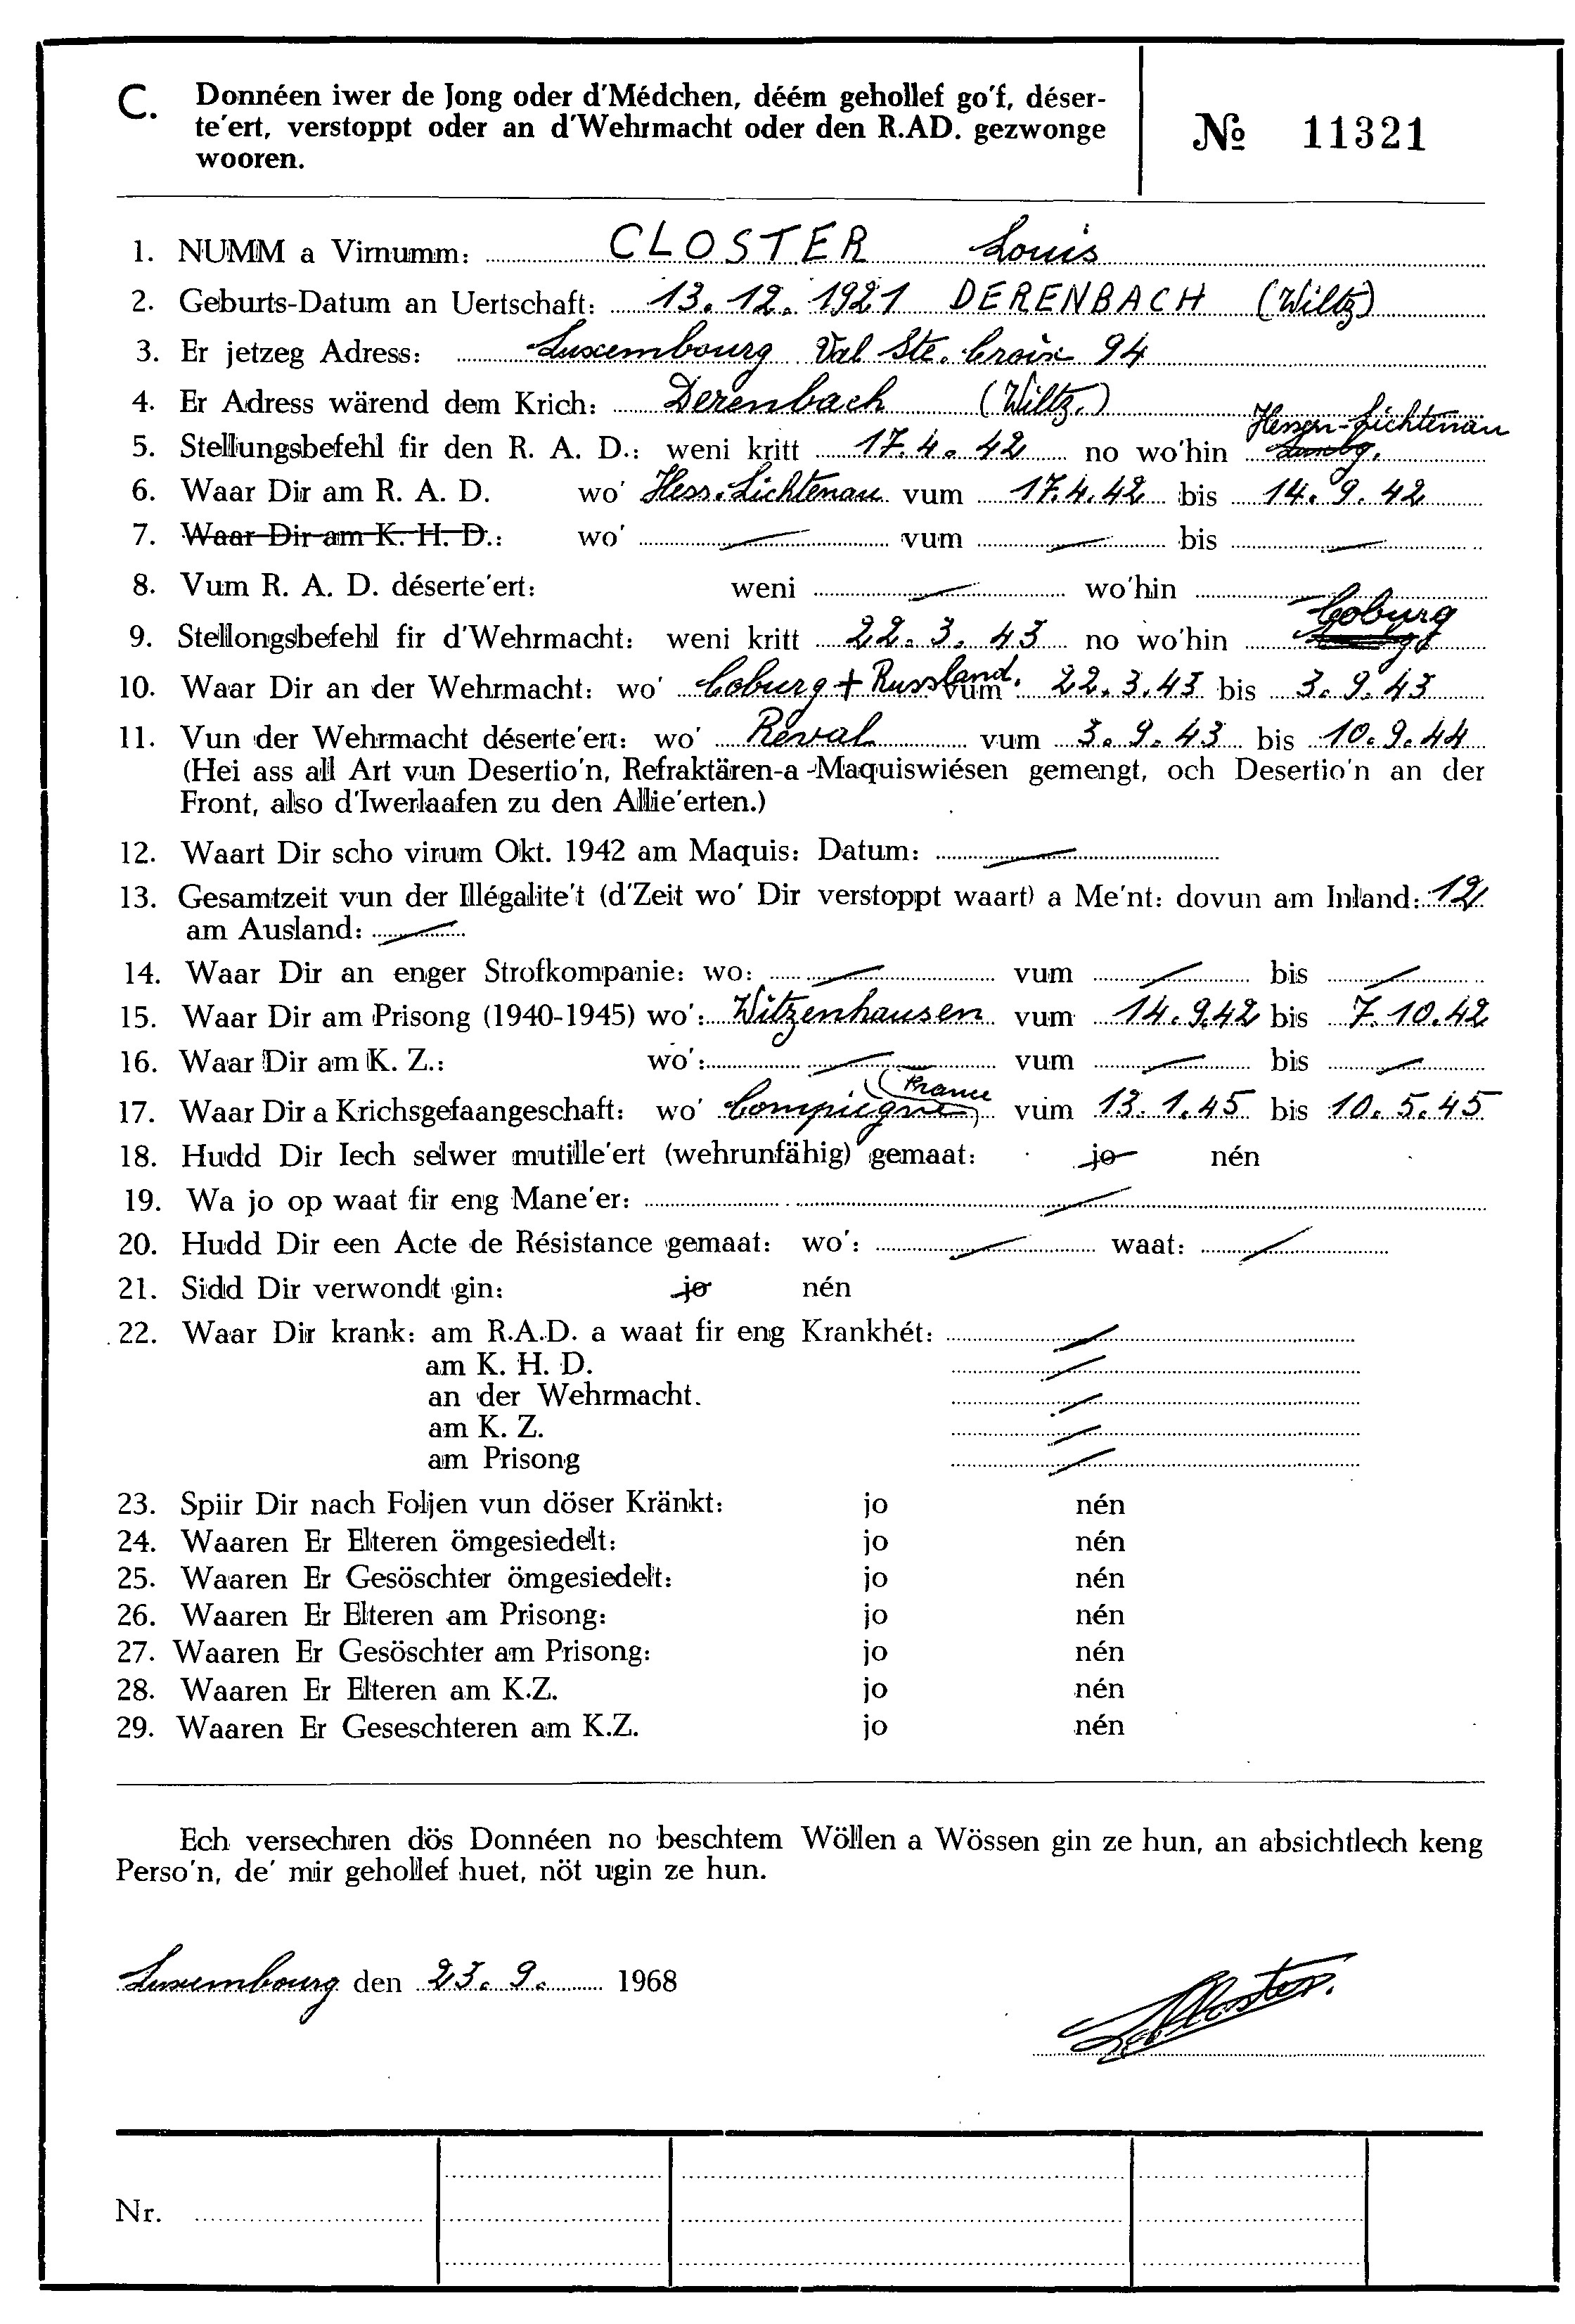 C. Donnéen iwer de Jong oder d'Médchen, déém gehollef go'f, déser-
te'ert, verstoppt oder an d'Wehrmacht oder den R.AD. gezwonge
wooren.
№ 11321
1. NUMM a Virnumm: CLOSTER Louis
2. Geburts-Datum an Uertschaft: 13.12.1921 DERENBACH (Wiltz)
3. Er jetzeg Adress: Luxembourg Val Ste. Croix 94
4. Er Adress wärend dem Krich: Derenbach (Wiltz.)
5. Stellungsbefehl fir den R. A. D.: weni kritt 17.4.42 no wo'hin Hessen-Lichtenau
6. Waar Dir am R. A. D. wo' Hess. Lichtenau vum 17.4.42 bis 14.9.42
7. Waar Dir am K. H. D.: wo' vum bis
8. Vum R. A. D. déserte'ert: weni wo'hin
9. Stellongsbefehl fir d'Wehrmacht: weni kritt 22.3.43 no wo'hin Coburg
10. Waar Dir an der Wehrmacht: wo' Coburg + Russland. vum 22.3.43 bis 3.9.43
11. Vun der Wehrmacht déserte'ert: wo' Reval vum 3.9.43 bis 10.9.44
(Hei ass all Art vun Desertio'n, Refraktären-a-Maquiswiésen gemengt, och Desertio'n an der
Front, also d'Iwerlaafen zu den Allie'erten.)
12. Waart Dir scho virum Okt. 1942 am Maquis: Datum:
13. Gesamtzeit vun der Illégalite't (d'Zeit wo' Dir verstoppt waart) a Me'nt: dovun am Inland: 12
am Ausland:
14. Waar Dir an enger Strofkompanie: wo: vum bis
15. Waar Dir am Prisong (1940-1945) wo': Witzenhausen vum 14.9.42 bis 7.10.42
16. Waar Dir am K. Z.: wo': vum bis
17. Waar Dir a Krichsgefaangeschaft: wo' Compiegne (France) vum 13.1.45 bis 10.5.45
18. Hudd Dir Iech selwer mutille'ert (wehrunfähig) gemaat: jo nén
19. Wa jo op waat fir eng Mane'er:
20. Hudd Dir een Acte de Résistance gemaat: wo': waat:
21. Sidd Dir verwondt gin: jo nén
22. Waar Dir krank: am R.A.D. a waat fir eng Krankhét:
am K. H. D.
an der Wehrmacht.
am K. Z.
am Prisong
23. Spiir Dir nach Foljen vun döser Kränkt: jo nén
24. Waaren Er Elteren ömgesiedelt: jo nén
25. Waaren Er Gesöschter ömgesiedelt: jo nén
26. Waaren Er Elteren am Prisong: jo nén
27. Waaren Er Gesöschter am Prisong: jo nén
28. Waaren Er Elteren am K.Z. jo nén
29. Waaren Er Geseschteren am K.Z. jo nén
Ech versechren dös Donnéen no beschtem Wöllen a Wössen gin ze hun, an absichtlech keng
Perso'n, de' mir gehollef huet, nöt ugin ze hun.
Luxembourg den 23.9. 1968
Closter.
Nr.